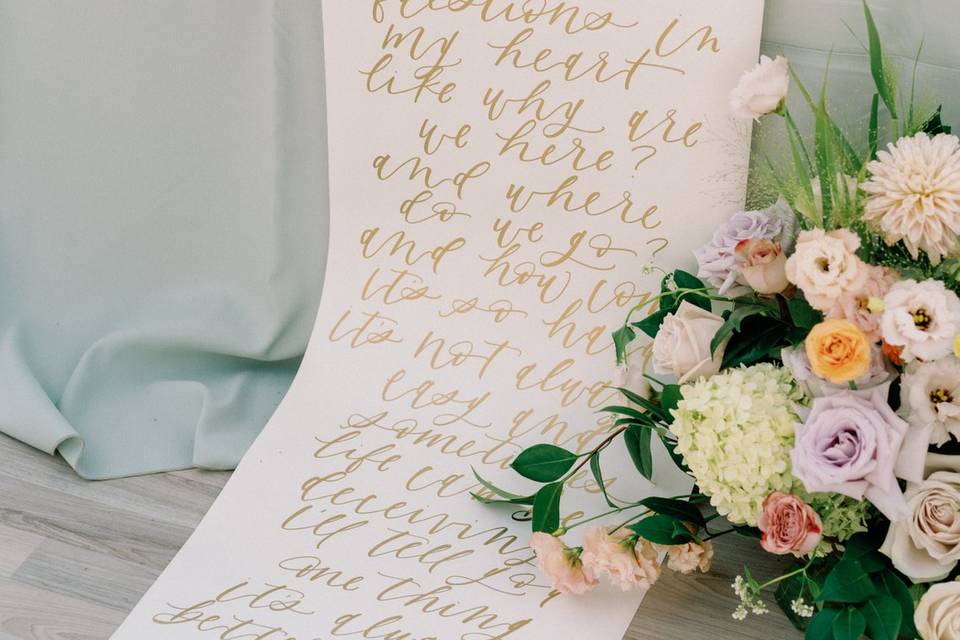 questions in
my heart
like why are
we here?
and where
do we go?
and how
it's so
it's not
easy and
sometimes
life
deceiving
i'll tell you
one thing
it's